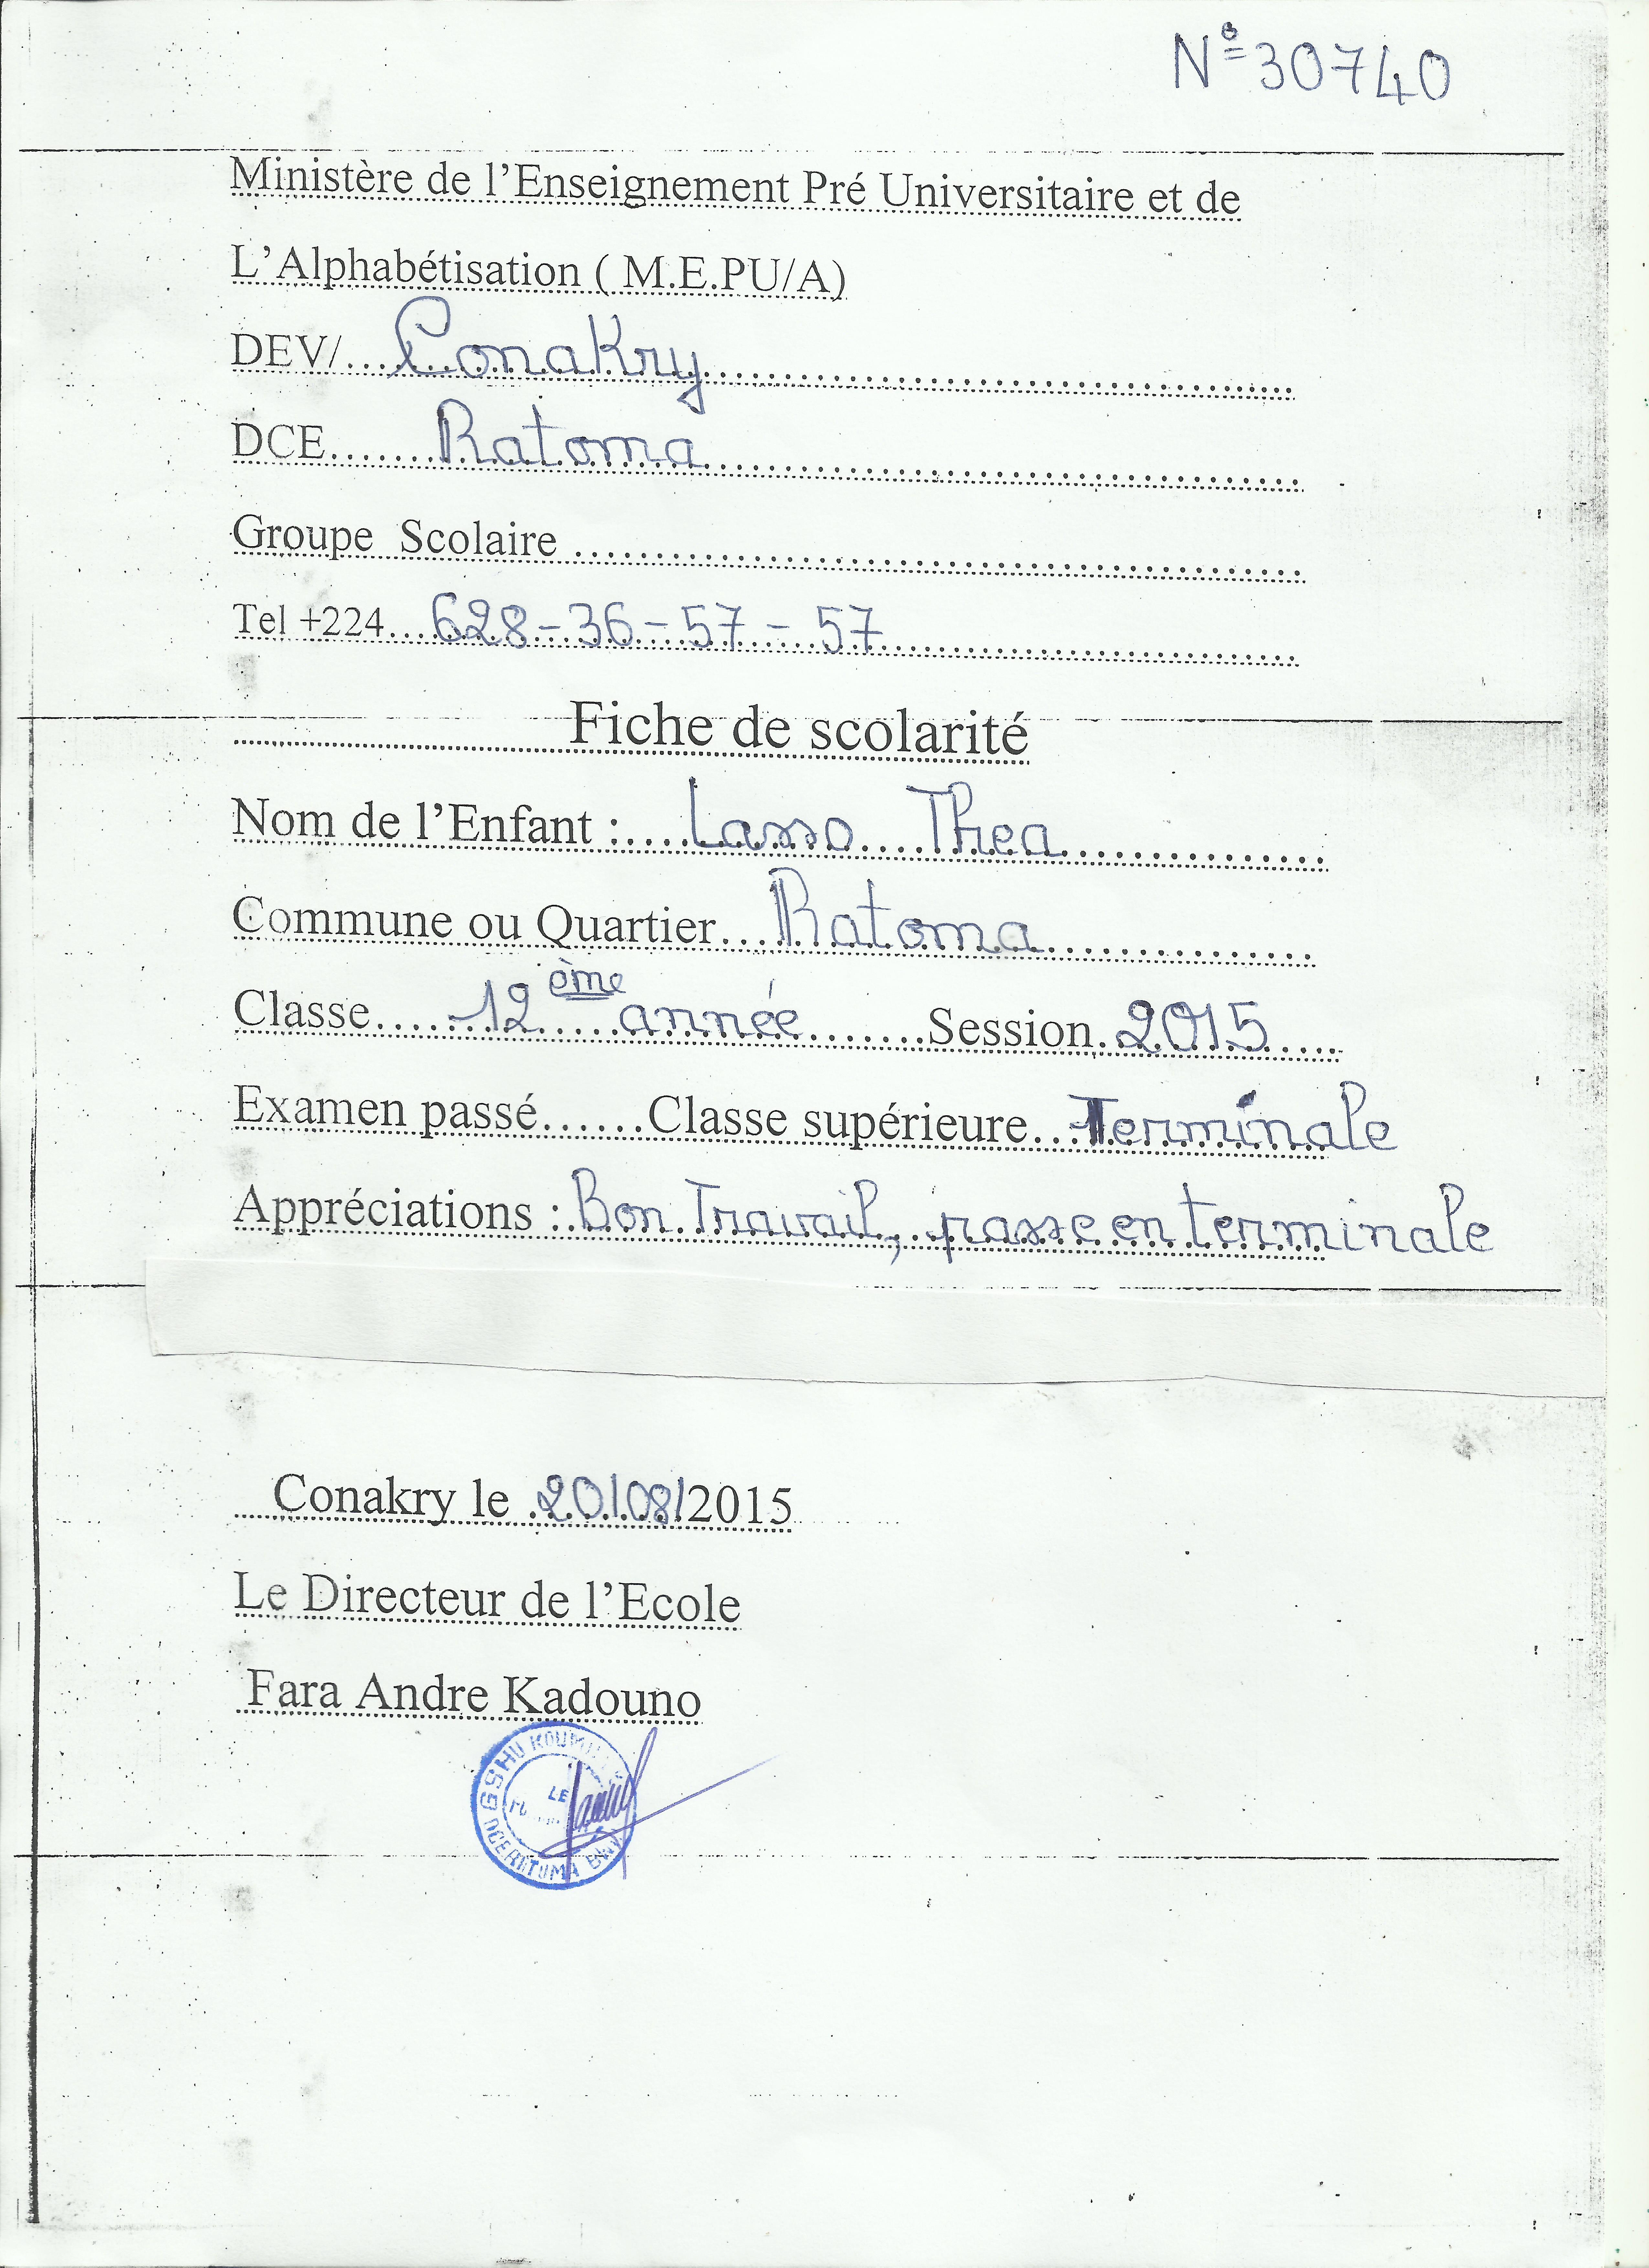 N° 30740
Ministère de l'Enseignement Pré Universitaire et de
L'Alphabétisation ( M.E.PU/A)
DEV/...Conakry
DCE.......Ratoma
Groupe Scolaire
Tel +224...628-36-57-57
Fiche de scolarité
Nom de l'Enfant :....Lasso Thea
Commune ou Quartier...Ratoma
Classe......12ème année.......Session.2015
Examen passé......Classe supérieure...Terminale
Appréciations : Bon Travail, passe en terminale
Conakry le 20/08/2015
Le Directeur de l'Ecole
Fara Andre Kadouno
GSHU
LE